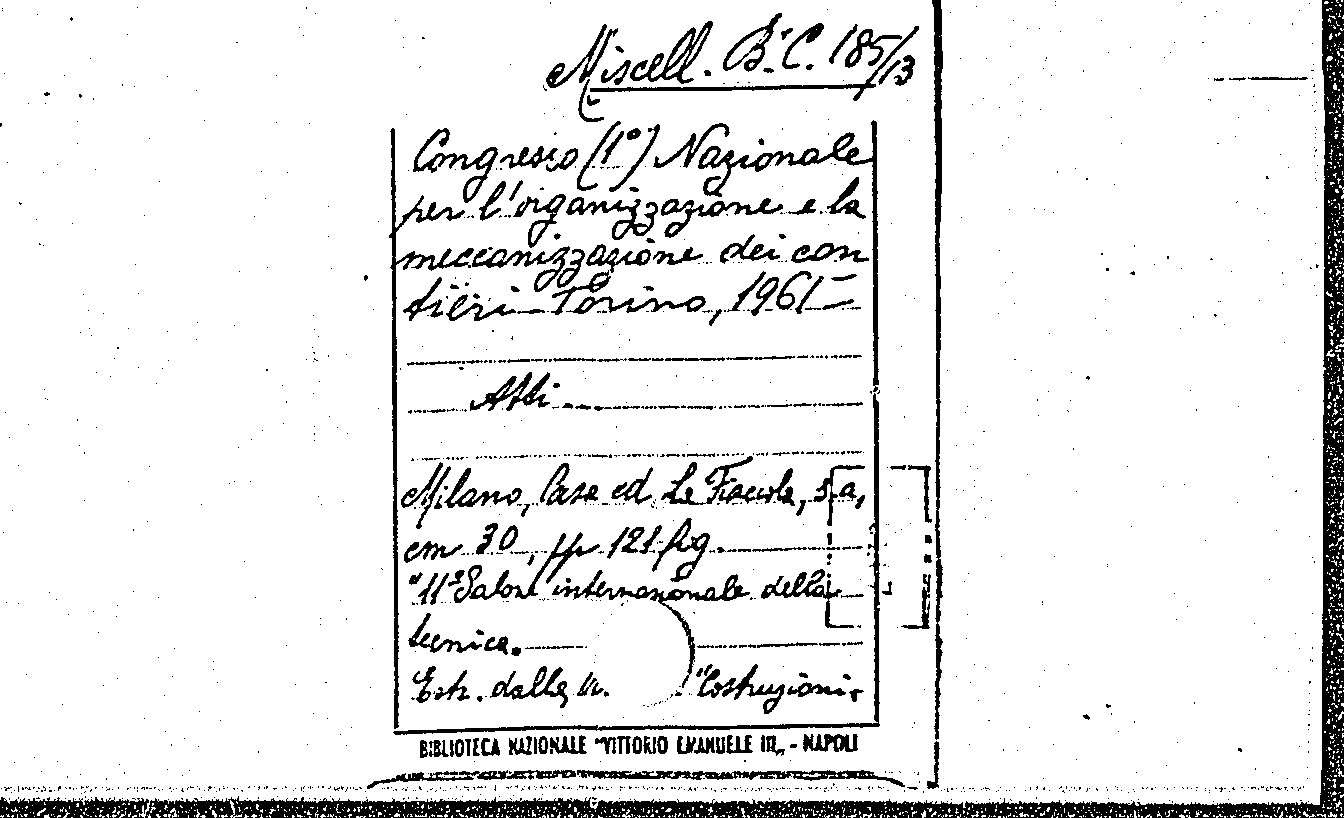 Miscell. B.C. 185/13
Congresso (1°) Nazionale
per l'organizzazione e la
meccanizzazione dei can
tieri - Torino, 1961 -
Atti
Milano, Casa ed La Fiaccola, s.a,
cm 30, pp 121 fig.
"11° Salone internazionale della
tecnica.
Estr. dalla r. "Costruzioni.
BIBLIOTECA NAZIONALE "VITTORIO EMANUELE III„ - NAPOLI